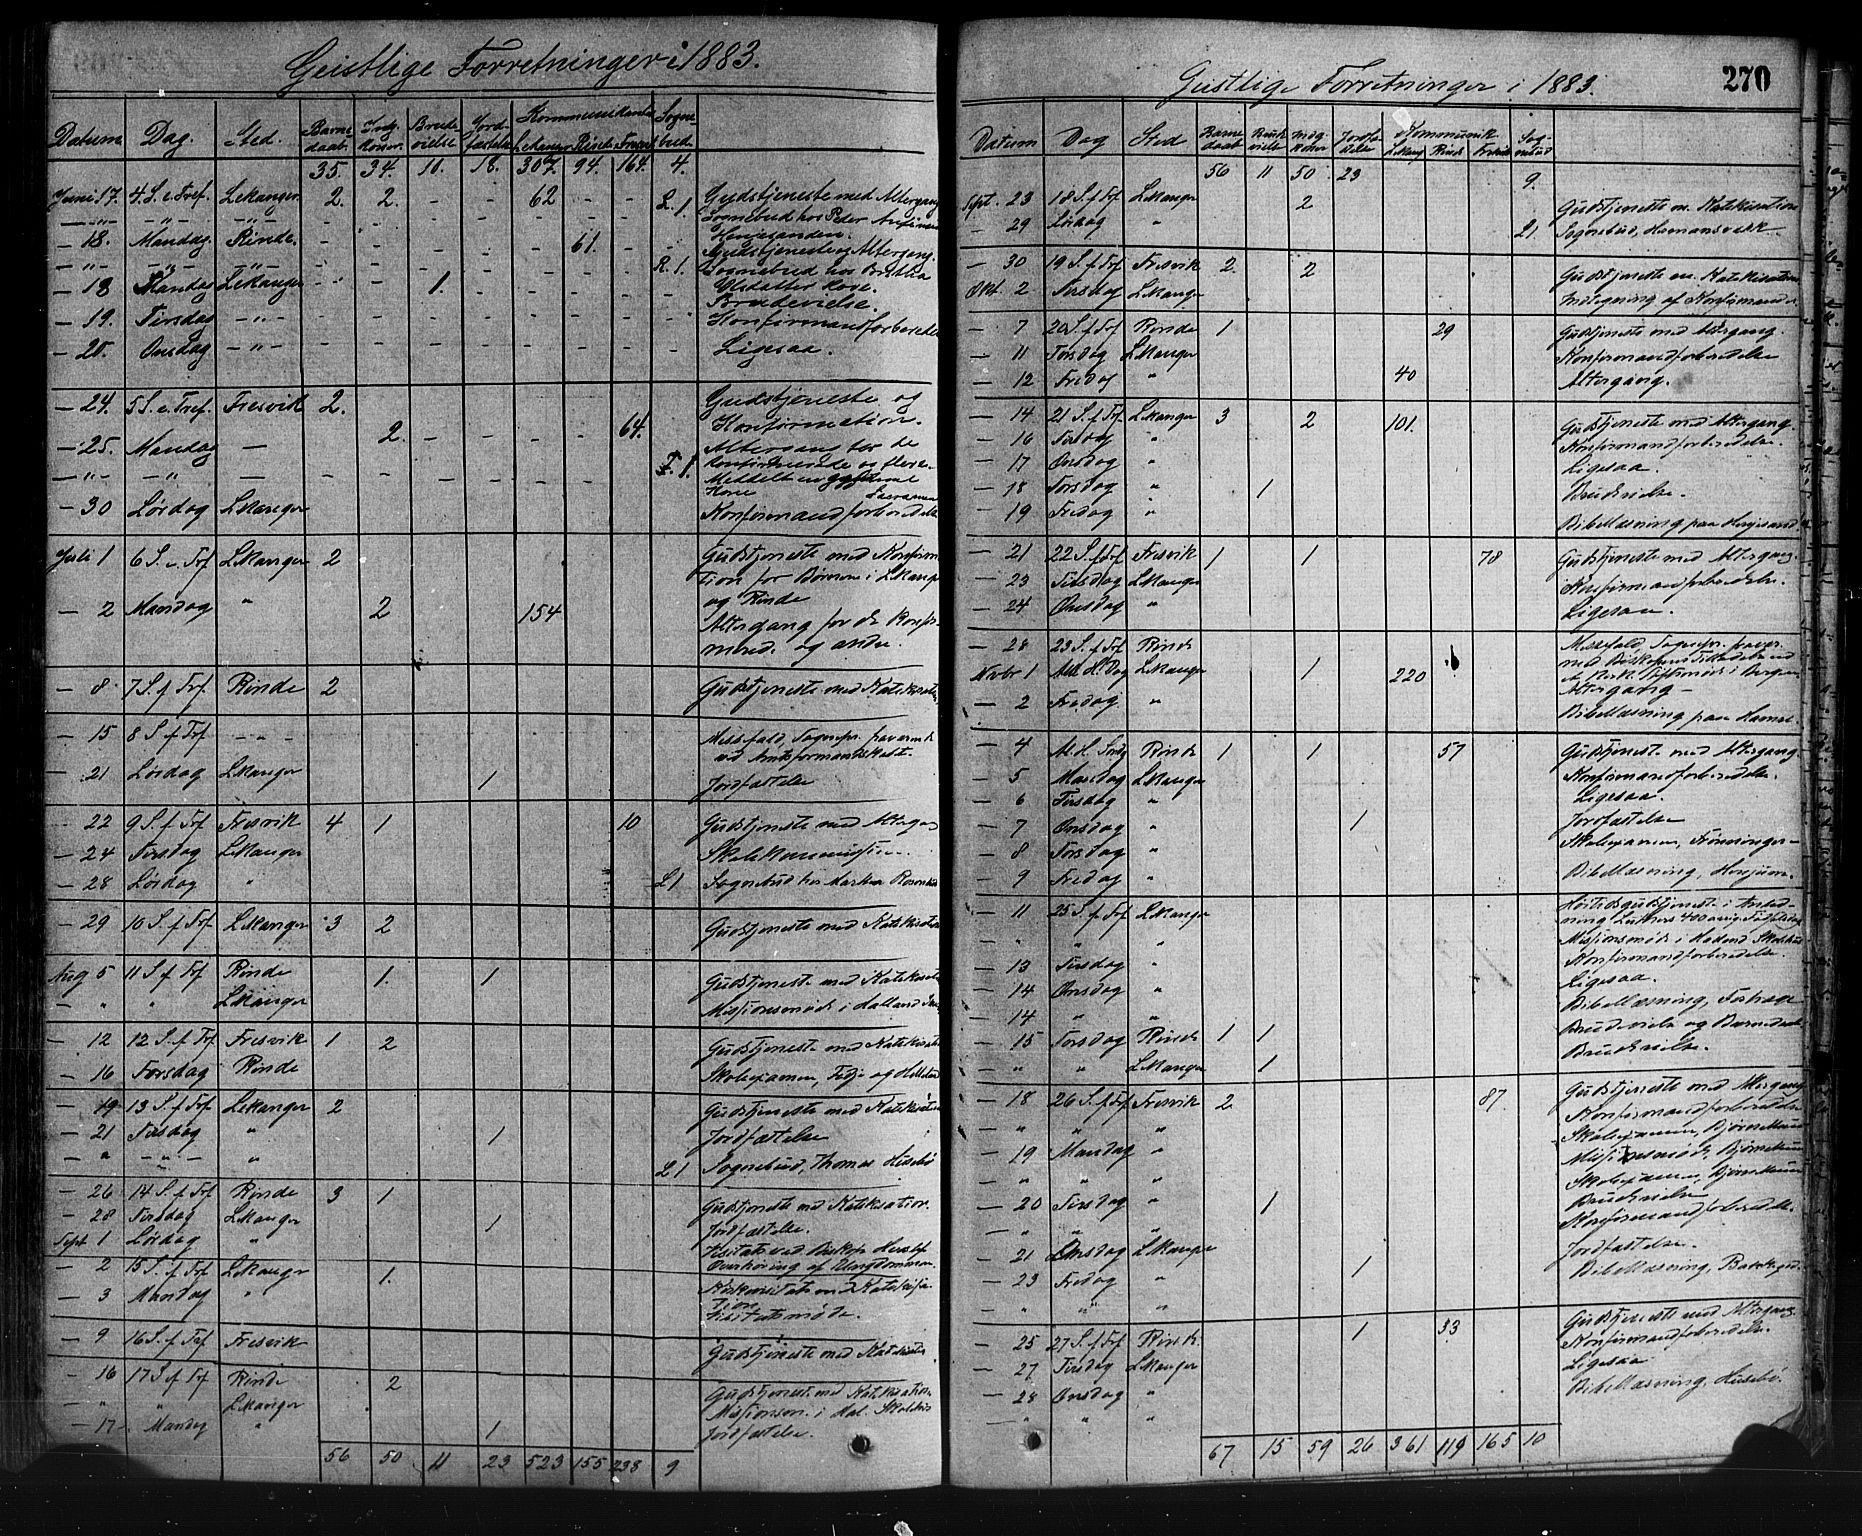 Geistlige Forretninger i 1883.
Datum Dag. Sted. Barne daab. Indg. Koner. Brude vielse Jord- fæstelse Kommunikanter Lekanger Rinde Fresvik Sogne bud
35. 34. 10. 18. 307. 94. 164. 4.
Juni 17. 4. S. e. Tref. Lekanger. 2. 2. 62 L. 1. Gudstjeneste med Altergang
Sognebud hos Peder
Henjesanden.
— 18. Mandag. Rinde. 61. Gudstjeneste og Altergang.
R. 1. Sognebud hos Brithe
— 18 Mandag Lekanger 1. Brudevielse.
— 19. Tirsdag —"— Konfirmandforberedelse
— 20. Onsdag —"— Ligesaa.
— 24. 5 S. e. Tref. Fresvik 2. Gudstjeneste og
Konfirmation.
— 25. Mandag — 2. 64. Altergang for de
konfirmerede og flere.
F. 1. Meddelt en
Kone Sacramen
— 30 Lørdag Lekanger Konfirmandforberedelse
Juli 1 6 S. e. Trf Lekanger 2 Gudstjeneste med Konfirma-
tion for Børnene i Lekanger
og Rinde
— 2 Mandag " 2 154 Altergang for de konfir-
mered. og andre.
— 8 7 S. f Trf. Rinde 2 Gudstjeneste med Katekisation
— 15 8 S. f Trf — - - Messefald, Sognepr. fraværende
ved Amtsformandskabet
— 21 Lørdag Lekanger 1 Jordfæstelse
— 22 9 S. f Trf Fresvik 4 1 10 Gudstjeneste med Altergang
— 24 Tirsdag Lekanger Skolekommission.
— 28 Lørdag " L 1 Sognebud hos
— 29 10 S. f Trf. Lekanger 3 2 Gudstjeneste med Katekisation
Aug 5 11 S. f Trf Rinde 1. 1 Gudstjeneste med Katekisation
" " Lekanger Missionsmøde i Halland
— 12 12 S. f Trf Fresvik 1 2 Gudstjeneste med Katekisation
— 16 Torsdag Rinde Skolexamen,
— 19 13 S. f Trf. Lekanger 2 Gudstjeneste med Katekisation
— 21 Tirsdag " 1 Jordfæstelse
— " —"— " L 1 Sognebud, Thomas Husebø
— 26 14 S. f Trf Rinde 3 1 Gudstjeneste med Katekisation.
— 28 Tirsdag Lekanger 1 Jordfæstelse.
Sept 1 Lørdag " Visitats ved Biskop
Overhøring af Ungdommen.
— 2 15 S. f Trf Lekanger 1. Katekisa-
tion
— 3 Mandag " Visitatsmøde.
— 9 16 S. f Trf Fresvik Gudstjeneste med Katekisation
— 16 17 S f Trf Rinde 2 Gudstjeneste med Katekisation.
" " Lekanger Missionsm. i Hal. Skolehus
— 17 Mandag " 1 Jordfæstelse.
56 50 11 23 523 155 238 9
Geistlige Forretninger i 1883.
270
Datum Dag Sted Barne daab Brude vielse Indg. Koner Jordfæ stelse Kommunik Lekang Rinde Fresvik Sog- nebud
56 11 50 23 9.
Sept. 23 18 S. f Trf Lekanger 2 Gudstjeneste m. Katekisation
— 29 Lørdag " 21. Sognebud, Hamansvikk
— 30 19 S. f Trf Fresvik 2. 2 Gudstjeneste m. Katekisation
Okt. 2 Tirsdag Lekanger Indtegning af Konfirmander
— 7 20 S. f Trf Rinde 1 29 Gudstjeneste med Altergang.
— 11 Torsdag Lekanger Konfirmandforberedelse
— 12 Fredag " 40 Altergang.
— 14 21 S. f Trf Lekanger 3 2 101. Gudstjeneste med Altergang.
— 16 Tirsdag " Konfirmandforberedelse.
— 17 Onsdag " Ligesaa.
— 18 Torsdag " 1 Brudevielse.
— 19 Fredag " Bibellæsning paa Henjesand
— 21 22 S. f Trf Fresvik 1 1 78 Gudstjeneste med Altergang.
— 23 Tirsdag Lekanger Konfirmandforberedelse.
— 24 Onsdag " Ligesaa.
— 28 23 S. f Trf Rinde Messefald, Sognepr. fravær.
med Biskopens Tilladelse ved
Stiftsmøde i Bergen
Novbr 1 Alle H. Dag Lekanger 1 220 Altergang —
— 2 Fredag " Bibellæsning paa Hamre.
— 4 Al. H. Søndg Rinde 1 1 57 Gudstjenest. med Altergang.
— 5 Mandag Lekanger Konfirmandforberedelse.
— 6 Tirsdag " Ligesaa.
— 7 Onsdag " 1 Jordfæstelse
— 8 Torsdag " Skolexamen, Frønningen —
— 9 Fredag " Bibellæsning, Henjum.
— 11 25 S. f Trf Lekanger Høitidsgudstjeneste i Anled-
ning Luthers 400 aarige Fødselsdag
" " " Missionsmøde i Halland Skolehus
— 13 Tirsdag " Konfirmandforberedelse.
— 14 Onsdag " Ligesaa.
— 14 " " Bibellæsning,
— 15 Torsdag Rinde 1 1 Brudevielse og Barnedaab
" " Lekanger 1 Brudevielse.
— 18 26 S. f Trf Fresvik 2 87. Gudstjeneste med Altergang
" " " Konfirmandforberedelse
— 19 Mandag " Skolexamen,
Missionsmøde,
" " " Skolexamen,
— 20 Tirsdag " 1 Brudevielse
" " " Konfirmandforberedelse.
— 21 Onsdag Lekanger Jordfæstelse.
— 23 Fredag " 1 Bibellæsning,
" " "
— 25 27 S. f Trf Rinde 1 33 Gudstjeneste med Altergang.
— 27 Tirsdag Lekanger Konfirmandforberedelse.
— 28 Onsdag " Ligesaa
" " " Bibellæsning, Husebø.
67 15 59 26 361 119 165 10